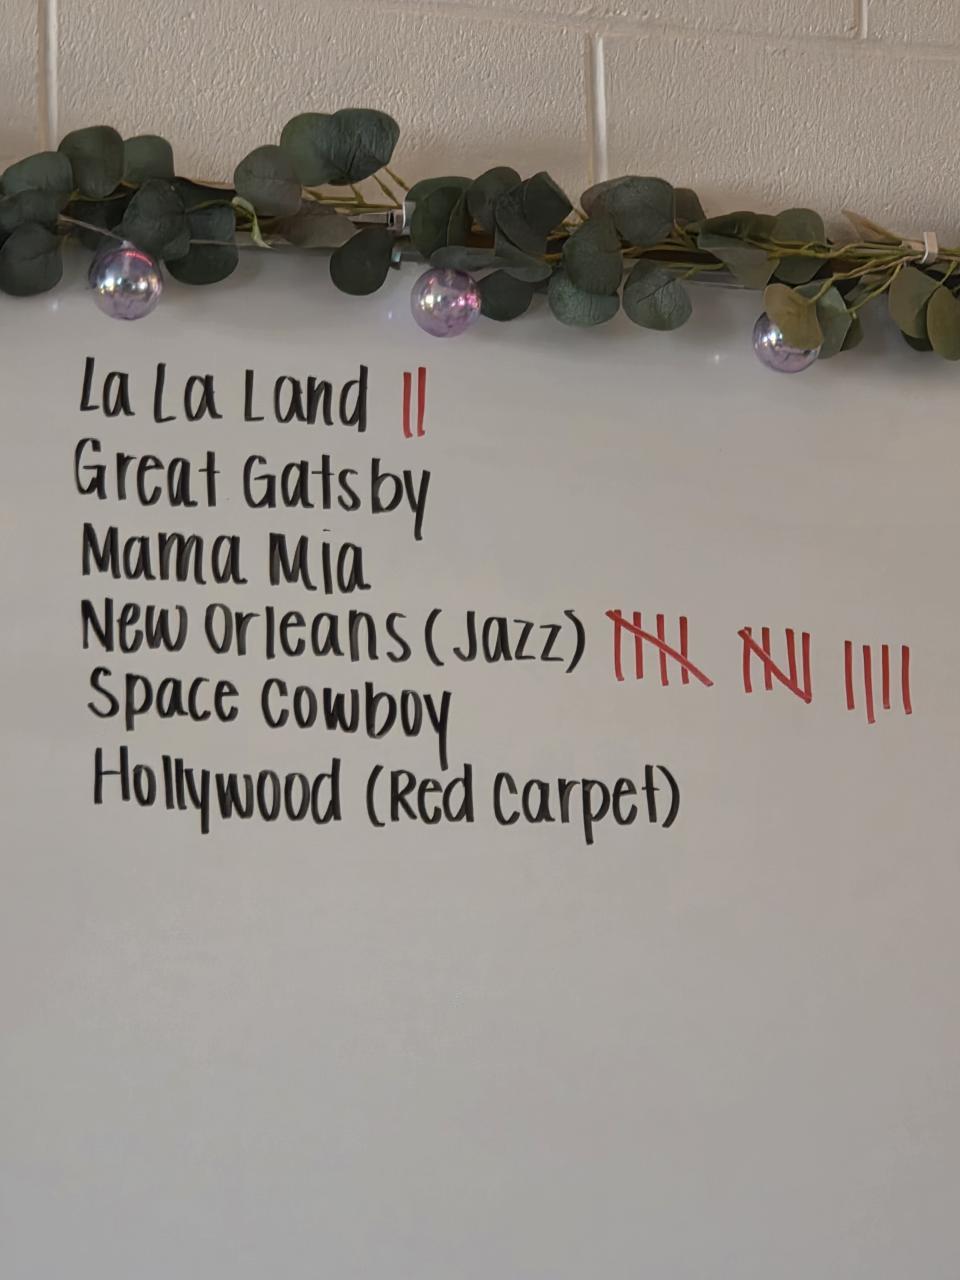 La La Land ||
Great Gatsby
Mama Mia
New Orleans (Jazz) 𝍸 𝍸 ||||
Space Cowboy
Hollywood (Red Carpet)